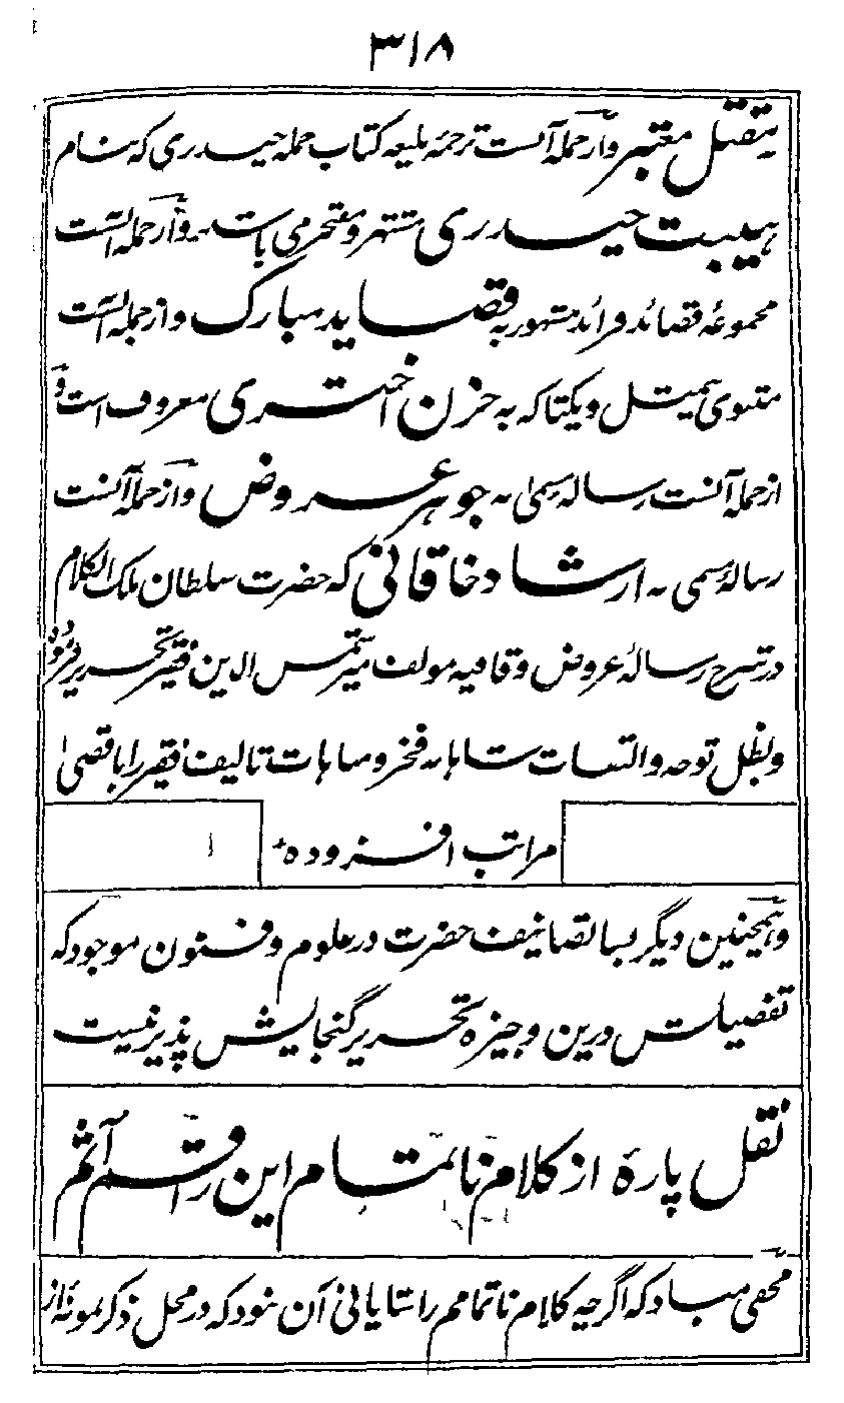 ۳۱۸
بتقتل معتبر و از جمله آنست ترجمه بلیغه کتاب حمله حیدری که بنام
هیبت حیدری مشتهر و مفتخر می باشد و از جمله آنست
مجموعه قصائد فرائد مشهور به قصاید مبارک و از جمله آنست
مثنوی بیمثل و یکتا که به حزن اختری معروف است و
از جمله آنست رساله مسمی به جوهر عروض و از جمله آنست
رساله مسمی به ارشاد خاقانی که حضرت سلطان ملک الکلام
در شرح رساله عروض و قافیه مولف میر شمس الدین فقیر تحریر فرموده
و بظل توجه و التفات شاهانه فخر و مباهات تالیف فقیر را باقصی
مراتب افزوده
و همچنین دیگر بسا تصانیف حضرت در علوم و فنون موجود که
تفصیلش درین وجیزه تحریر گنجایش پذیر نیست
نقل پارهٔ از کلام ناتمام این راقم آثم
مخفی مباد که اگرچه کلام ناتمامم را شایانی آن نبود که در محل ذکر نمونهٔ از